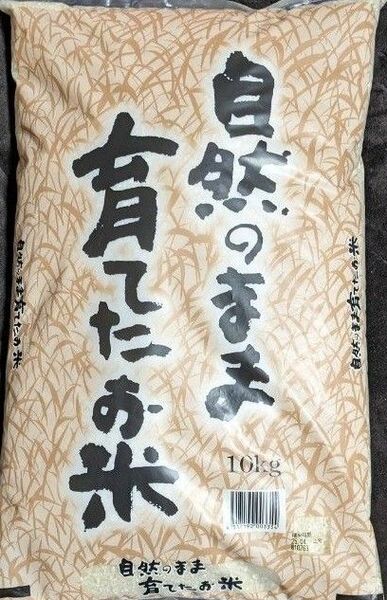 自然のまま
育てたお米
自然のまま育てたお米
自然のまま育てたお米
10kg
自然のまま
育てたお米